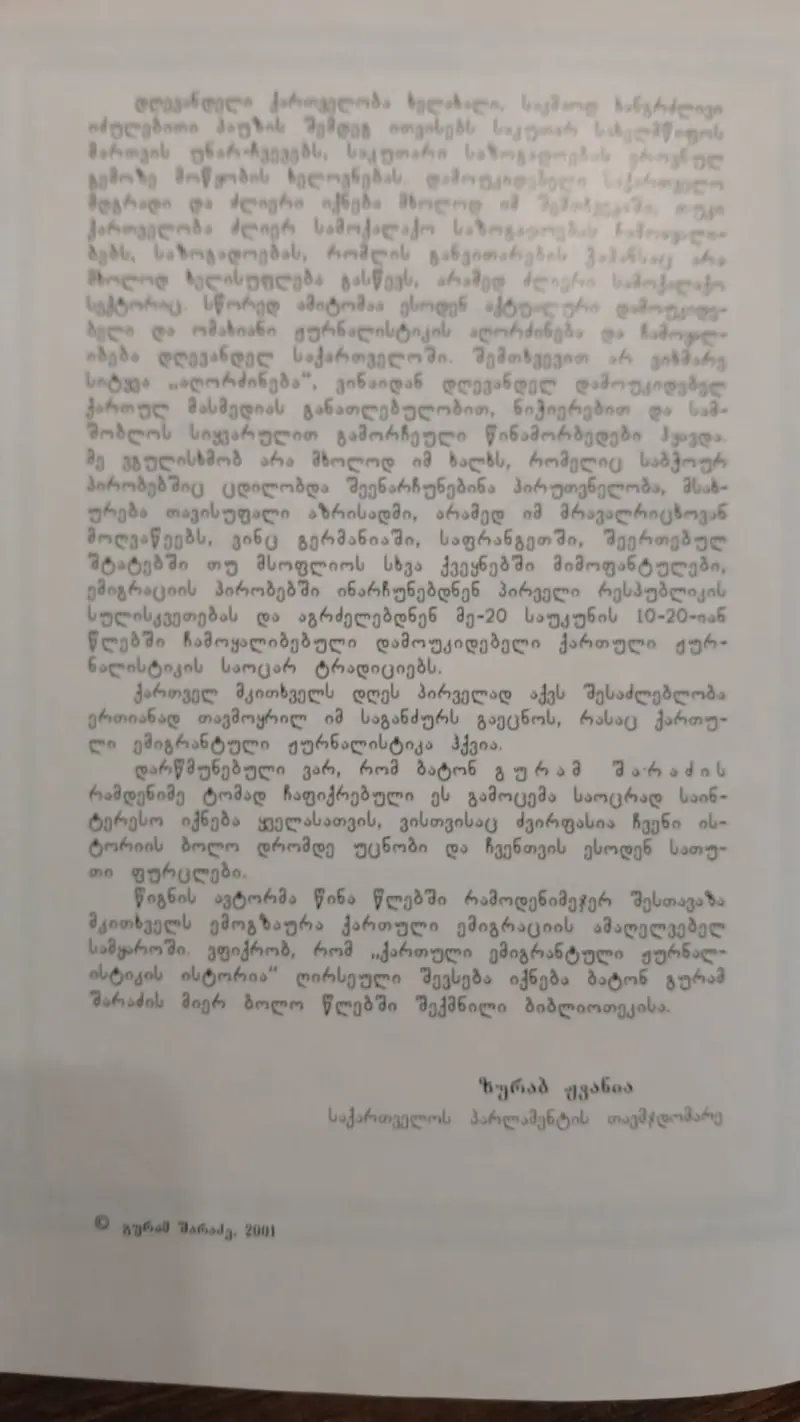 დღევანდელი ქართველობა ხელახალი, საკმაოდ ხანგრძლივი
იძულებითი პაუზის შემდეგ ითვისებს საკუთარ სახელმწიფოს
მართვის უნარ-ჩვევებს, საკუთარი საზოგადოების ეროვნულ
გემოზე მოწყობის ხელოვნებას. დამოუკიდებელი საქართველო
მდგრადი და ძლიერი იქნება მხოლოდ იმ შემთხვევაში, თუკი
ქართველობა ძლიერ სამოქალაქო საზოგადოებას ჩამოაყალი-
ბებს, საზოგადოებას, რომლის განვითარების ჭაპანსაც არა
მხოლოდ ხელისუფლება გასწევს, არამედ ძლიერი სამოქალაქო
სექტორიც. სწორედ ამიტომაა ესოდენ აქტუალური დამოუკიდე-
ბელი და ომახიანი ჟურნალისტიკის აღორძინება და ჩამოყალ-
იბება დღევანდელ საქართველოში. შემთხვევით არ ვიხმარე
სიტყვა „აღორძინება“, ვინაიდან დღევანდელ დამოუკიდებელ
ქართულ მასმედიას განათლებულობით, ნიჭიერებით და სამ-
შობლოს სიყვარულით გამორჩეული წინამორბედები ჰყავდა.
მე ვგულისხმობ არა მხოლოდ იმ ხალხს, რომელიც საბჭოურ
პირობებშიც ცდილობდა შეენარჩუნებინა პირუთვნელობა, მსახ-
ურება თავისუფალი აზრისადმი, არამედ იმ მრავალრიცხოვან
მოღვაწეებს, ვინც გერმანიაში, საფრანგეთში, შეერთებულ
შტატებში თუ მსოფლიოს სხვა ქვეყნებში მიმოფანტულები,
ემიგრაციის პირობებში ინარჩუნებდნენ პირველი რესპუბლიკის
სულისკვეთებას და აგრძელებდნენ მე-20 საუკუნის 10-20-იან
წლებში ჩამოყალიბებული დამოუკიდებელი ქართული ჟურ-
ნალისტიკის საოცარ ტრადიციებს.
ქართველ მკითხველს დღეს პირველად აქვს შესაძლებლობა
ერთიანად თავმოყრილ იმ საგანძურს გაეცნოს, რასაც ქართუ-
ლი ემიგრანტული ჟურნალისტიკა ჰქვია.
დარწმუნებული ვარ, რომ ბატონ გურამ შარაძის
რამდენიმე ტომად ჩაფიქრებული ეს გამოცემა საოცრად საინ-
ტერესო იქნება ყველასათვის, ვისთვისაც ძვირფასია ჩვენი ის-
ტორიის ბოლო დრომდე უცნობი და ჩვენთვის ესოდენ სათუ-
თი ფურცლები.
წიგნის ავტორმა წინა წლებში რამოდენიმეჯერ შესთავაზა
მკითხველს ემოგზაურა ქართული ემიგრაციის ამაღელვებელ
სამყაროში. ვფიქრობ, რომ „ქართული ემიგრანტული ჟურნალ-
ისტიკის ისტორია“ ღირსეული შევსება იქნება ბატონ გურამ
შარაძის მიერ ბოლო წლებში შექმნილი ბიბლიოთეკისა.
ზურაბ ჟვანია
საქართველოს პარლამენტის თავმჯდომარე
© გურამ შარაძე, 2001